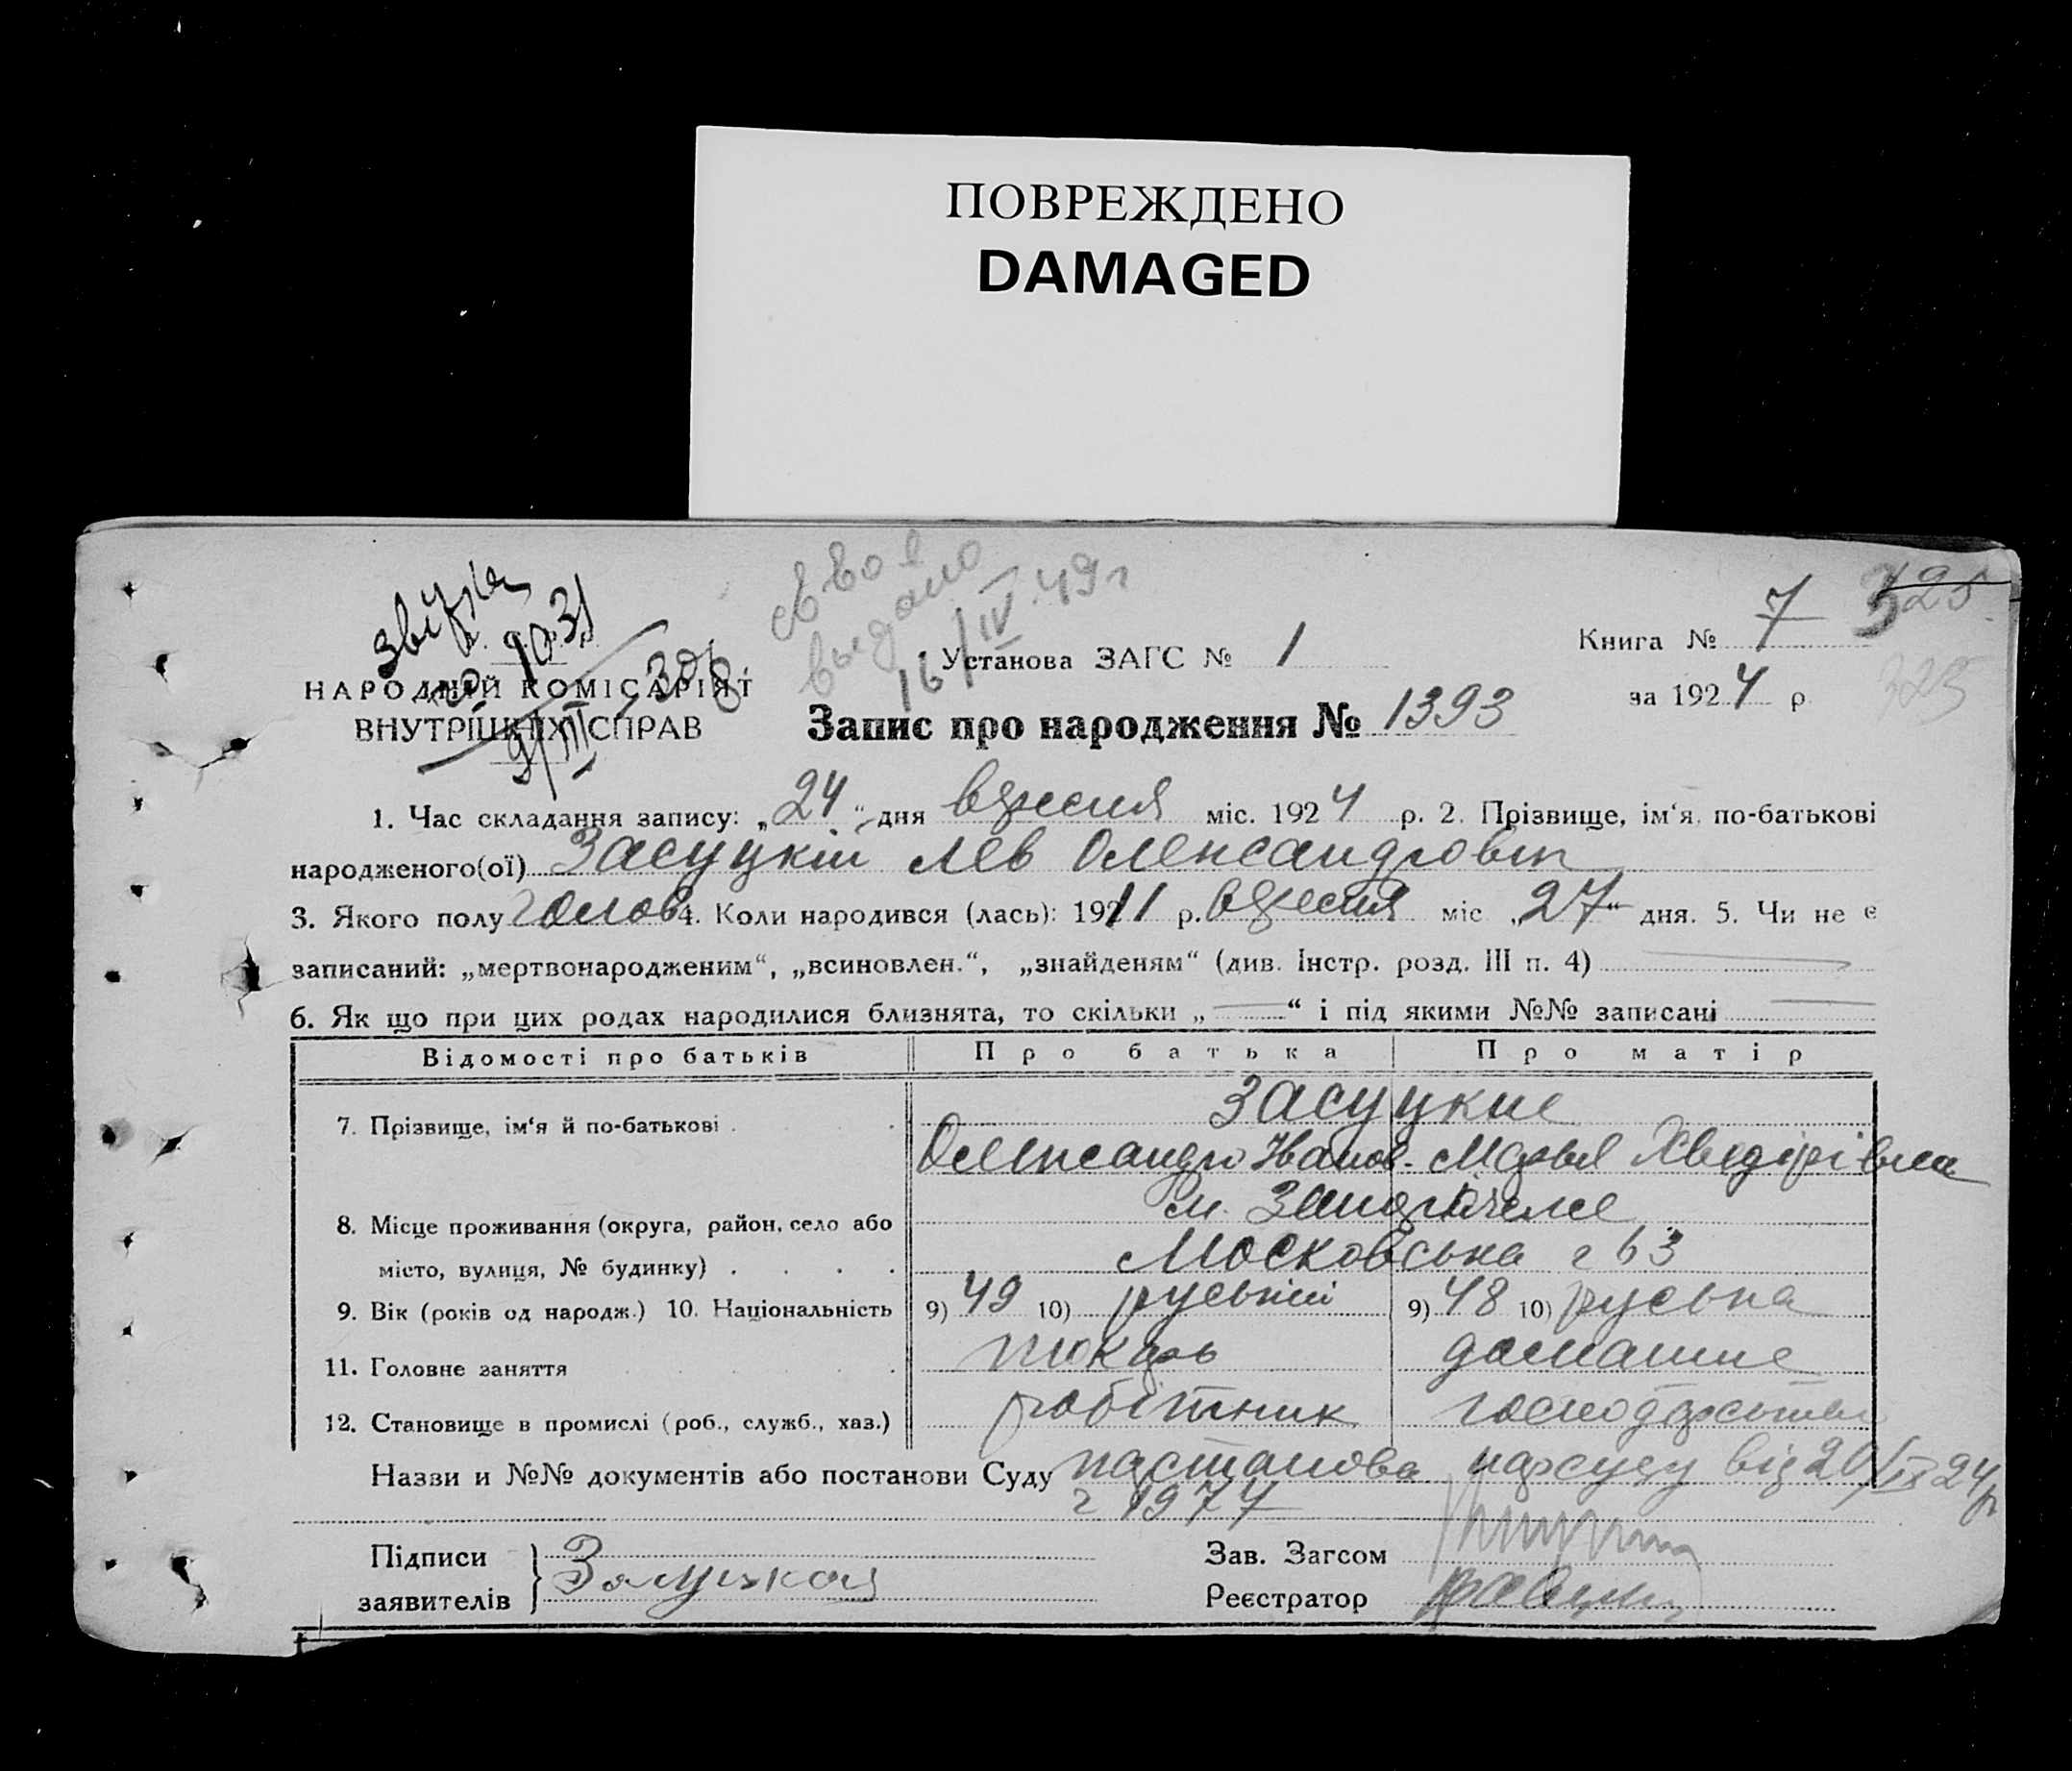 ПОВРЕЖДЕНО
DAMAGED
выдано
16/IV 49 г
Книга № 7 325
325
Установа ЗАГС № 1
за 1924 р.
НАРОДНІЙ КОМІСАРІЯТ
ВНУТРІШНІХ СПРАВ
9/III
Запис про народження № 1393
1. Час складання запису: „24“ дня вересня міс. 1924 р. 2. Прізвище, ім‘я, по-батькові
народженого(ої) Засуцкій Лев Олександровіч
3. Якого полу чолов 4. Коли народився (лась): 1911 р. вересня міс „27“ дня. 5. Чи не є
записаний: „мертвонародженим“, „всиновлен.“, „знайденям“ (див. Інстр. розд. III п. 4)
6. Як що при цих родах народилися близнята, то скільки „ “ і під якими №№ записані
Відомості про батьків Про батька Про матір
Засуцкие
7. Прізвище, ім‘я й по-батькові
Олександр Иванов. Марья Хведірівна
м. Запоріжже
8. Місце проживання (округа, район, село або
місто, вулиця, № будинку)
Московська 63
9. Вік (років од народж.) 10. Національність 9) 49 10) руський 9) 48 10) руська
11. Головне заняття токарь домашне
12. Становище в промислі (роб., служб., хаз.) робітник господарство
Назви и №№ документів або постанови Суду постанова нарсуду від 20/IX 24 р
1974
Підписи
заявителів
Зав. Загсом
Реєстратор